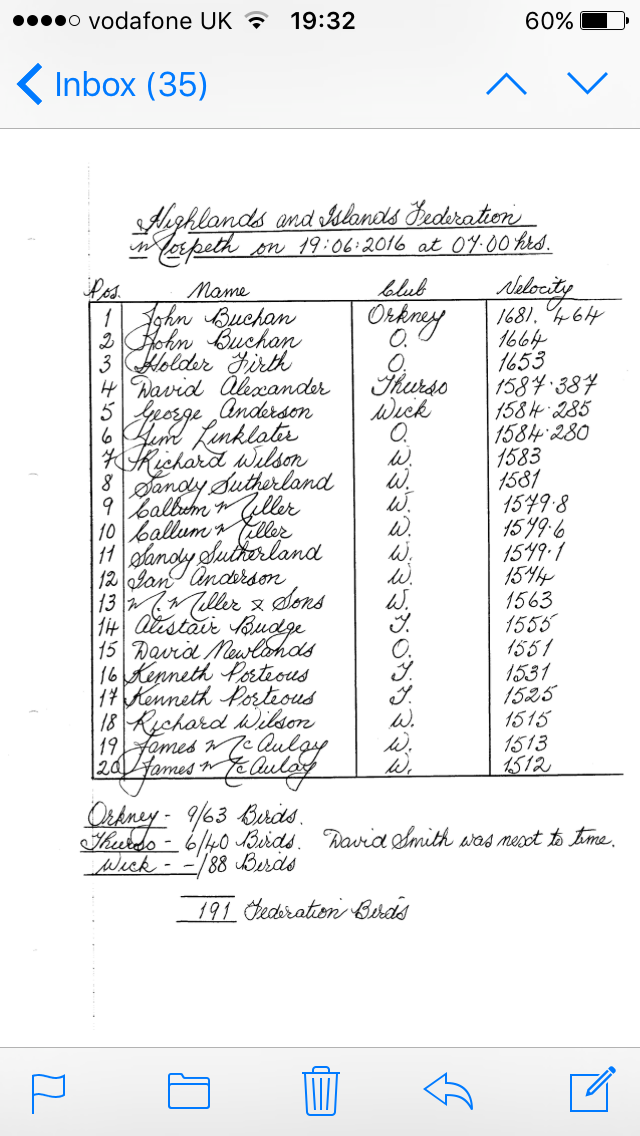 vodafone UK 19:32 60%
Inbox (35)
Highlands and Islands Federation
Morpeth on 19:06:2016 at 07.00 hrs.
Pos. Name Club Velocity
1 John Buchan Orkney 1681.464
2 John Buchan O. 1664
3 Holder Firth O. 1653
4 David Alexander Thurso 1587.387
5 George Anderson Wick 1584.285
6 Jim Linklater O. 1584.280
7 Richard Wilson W. 1583
8 Sandy Sutherland W. 1581
9 Callum Miller W. 1579.8
10 Callum Miller W. 1579.6
11 Sandy Sutherland W. 1579.1
12 Ian Anderson W. 1574
13 M. Miller & Sons W. 1563
14 Alistair Budge T. 1555
15 David Newlands O. 1551
16 Kenneth Porteous T. 1531
17 Kenneth Porteous T. 1525
18 Richard Wilson W. 1515
19 James McAulay W. 1513
20 James McAulay W. 1512
Orkney - 9/63 Birds.
Thurso - 6/40 Birds. David Smith was next to time.
Wick - -/88 Birds
191 Federation Birds